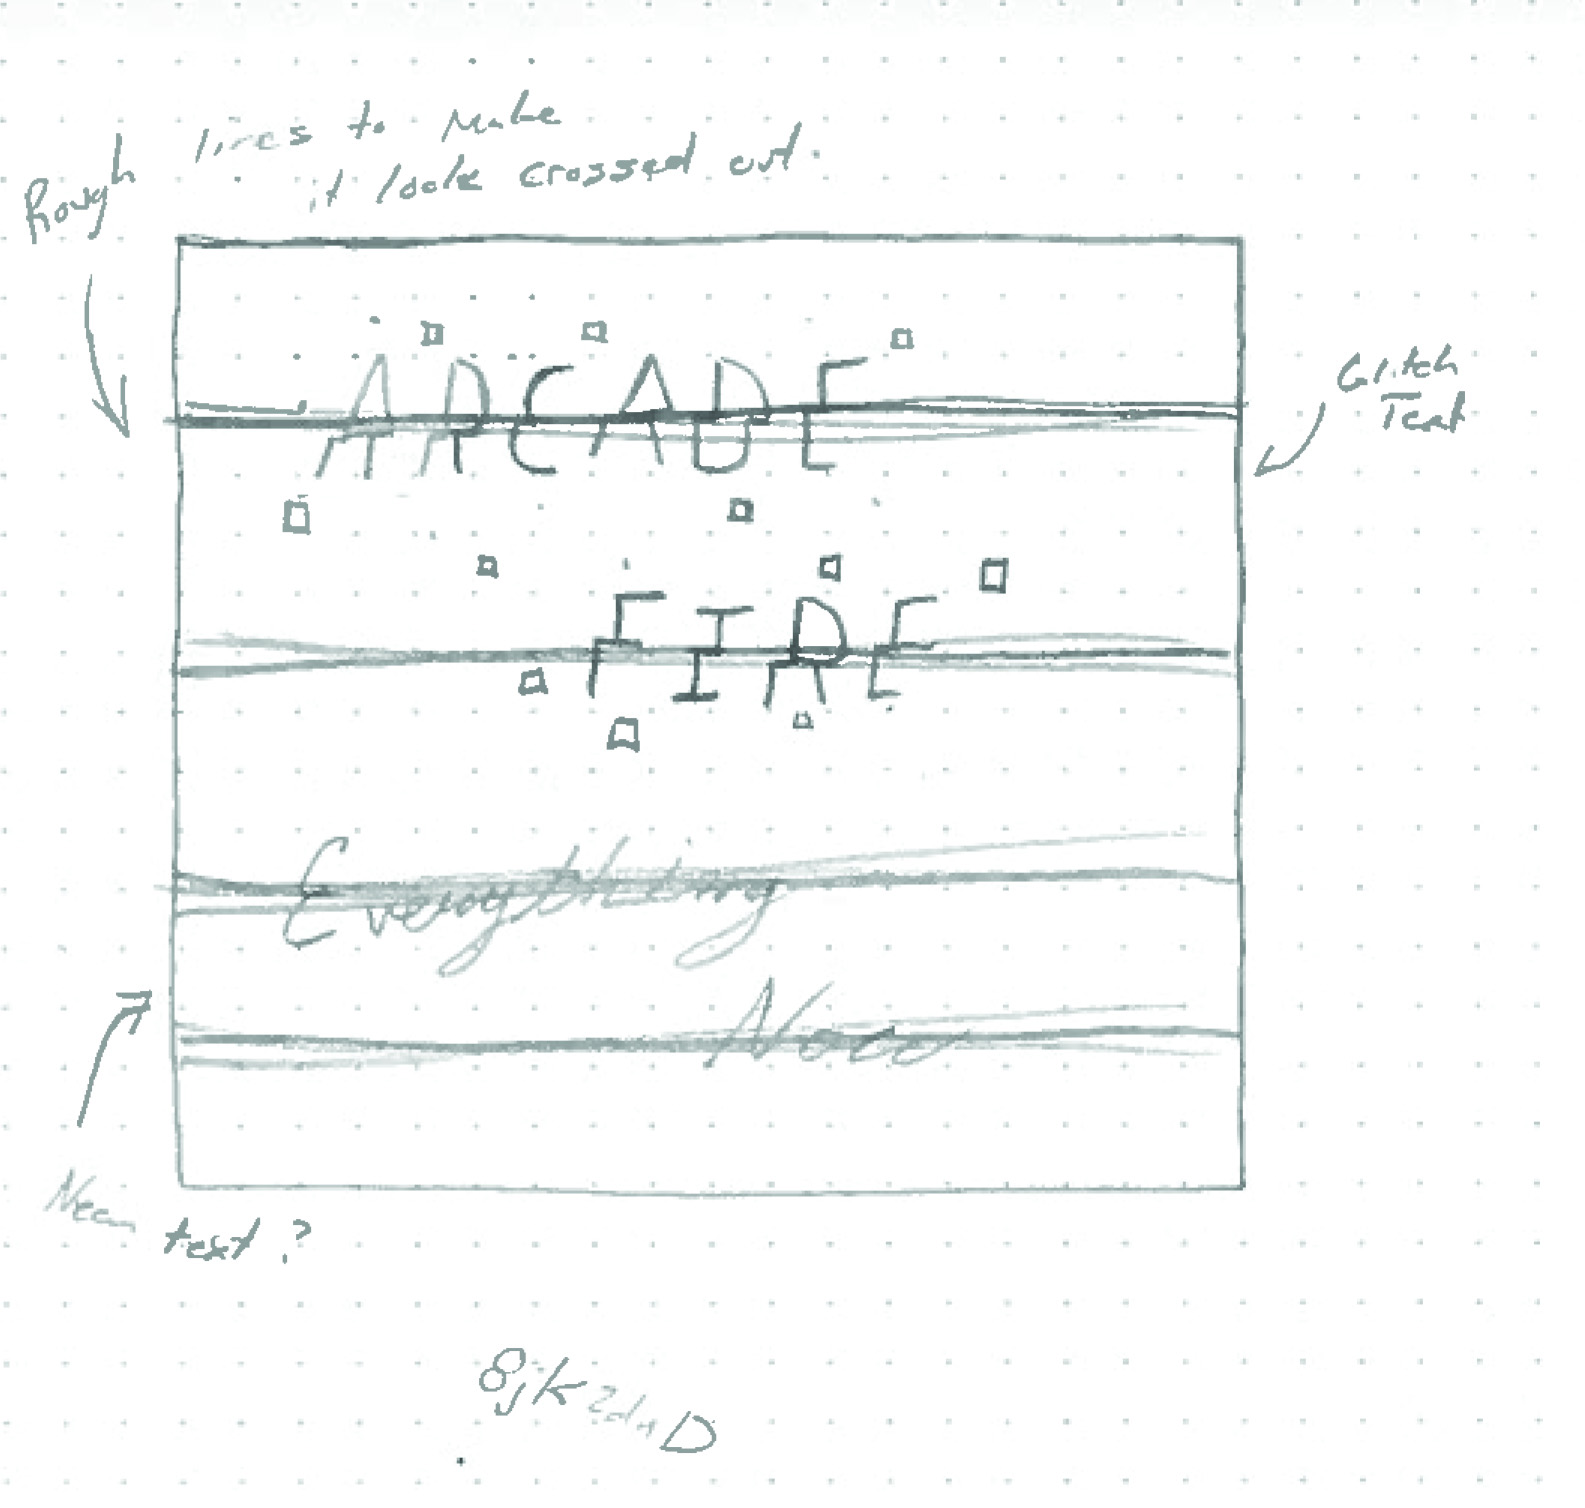 Rough lines to make
it look crossed out.
ARCADE
Glitch
Text
FIRE
Everything
Now
Neon text?
8jk2dnD